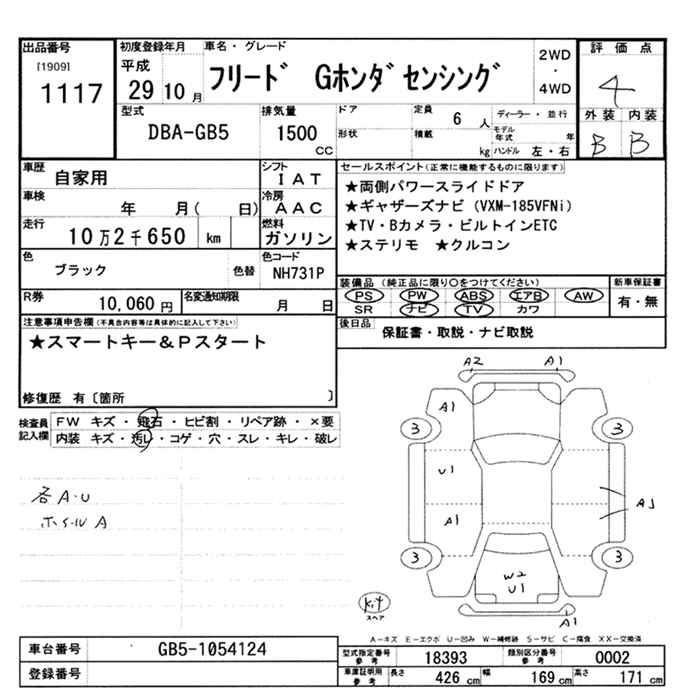 出品番号
[1909]
1117
初度登録年月
平成
29 10 月
車名・グレード
フリード Gホンダセンシング
2WD
・
4WD
評価点
4
外装 内装
B B
型式
DBA-GB5
排気量
1500
CC
ドア
形状
定員
6 人
積載
kg
ディーラー・並行
モデル年式 年
ハンドル 左・右
車歴
自家用
シフト
IAT
車検
年 月( 日)
冷房
AAC
走行
10万2千650 km
燃料
ガソリン
色
ブラック
色替
色コード
NH731P
R券
10,060 円
名変通知期限
月 日
セールスポイント(正常に機能するものに限ります)
★両側パワースライドドア
★ギャザーズナビ(VXM-185VFNi)
★TV・Bカメラ・ビルトインETC
★ステリモ ★クルコン
装備品(純正品に限り○をつけてください)
PS PW ABS エアB AW
SR ナビ TV カワ
新車保証書
有・無
後日品
保証書・取説・ナビ取説
注意事項申告欄(不具合内容等は具体的に記入して下さい)
★スマートキー&Pスタート
修復歴 有〔箇所 〕
検査員
記入欄
FW キズ・飛石・ヒビ割・リペア跡・×要
内装 キズ・汚レ・コゲ・穴・スレ・キレ・破レ
各A・U
ホイールA
A2 A1
A1
3 3
U1
A1
A1
3 3
W2
U1
キット
スペア
A1
A-キズ E-エクボ U-凹み W-補修跡 S-サビ C-腐食 XX-交換済
車台番号
GB5-1054124
登録番号
型式指定番号
参考
18393
類別区分番号
参考
0002
車庫証明用
参考
長さ 426 cm 幅 169 cm 高さ 171 cm